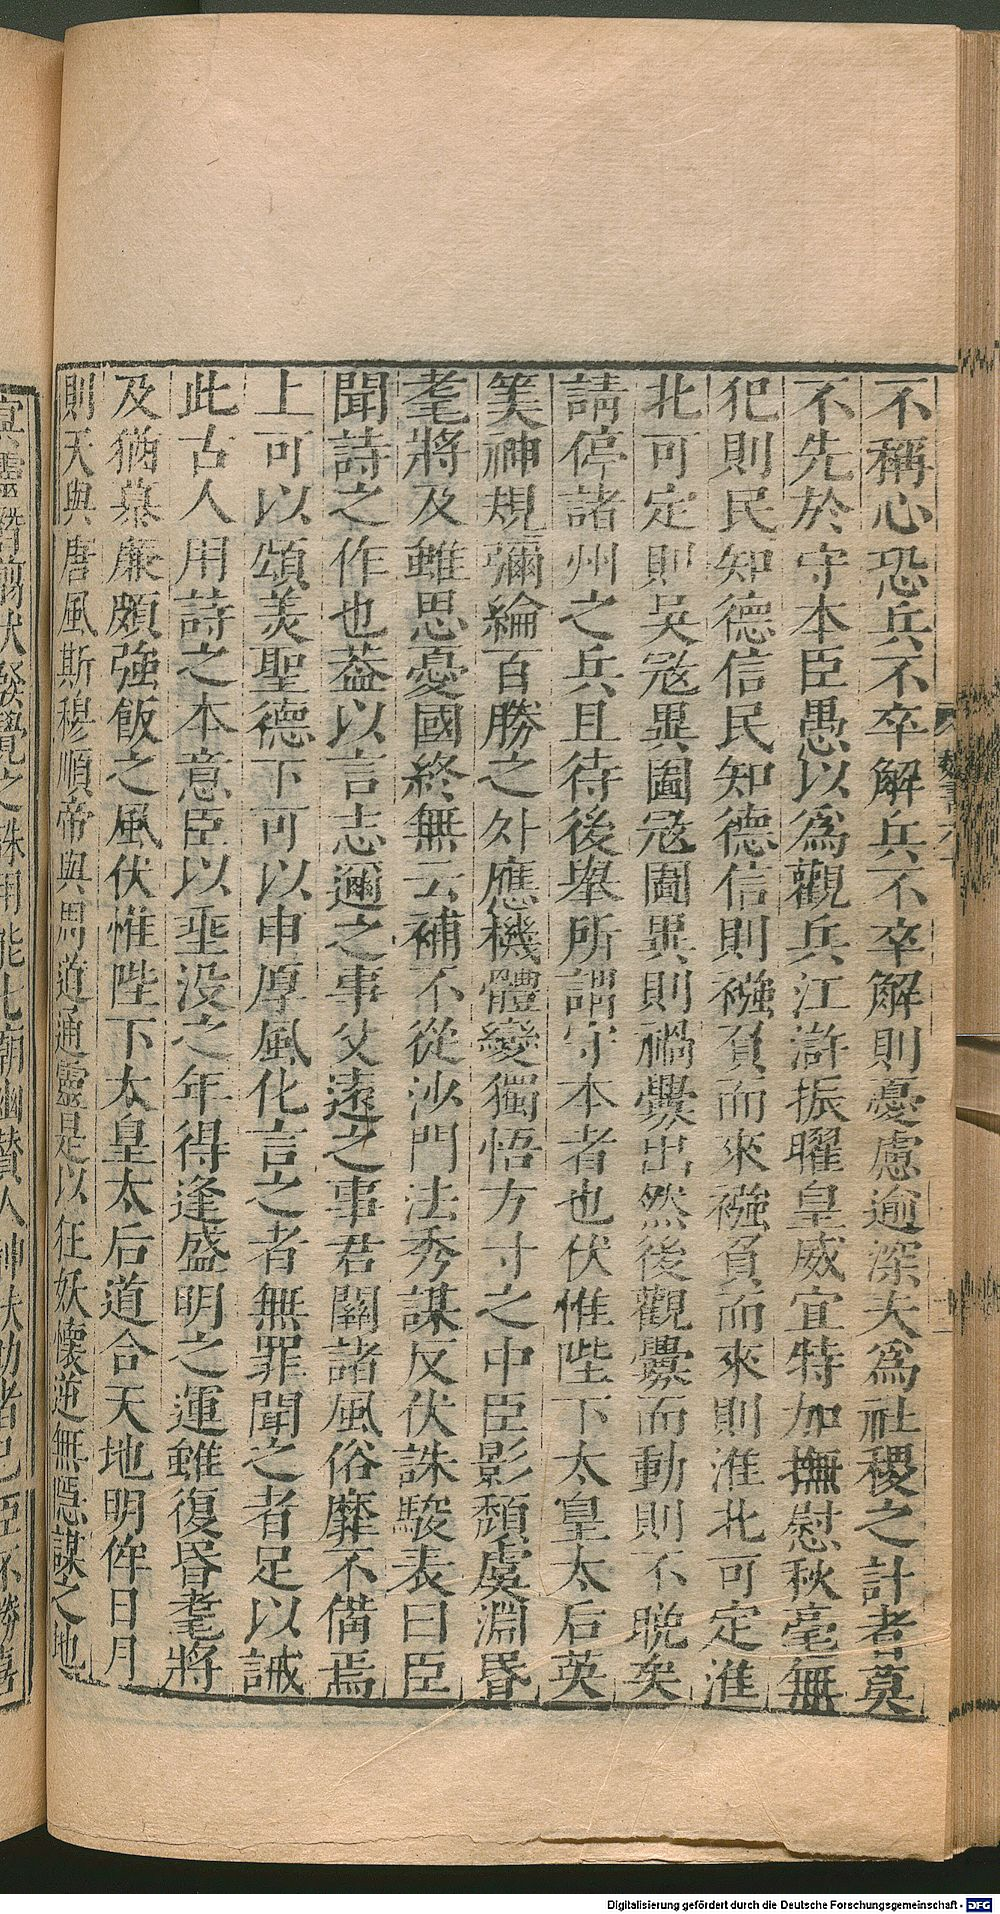 不稱心恐兵不卒解兵不卒解則憂慮逾深夫爲社稷之計者莫
不先於守本臣愚以爲觀兵江滸振曜皇威宜特加撫慰秋毫無
犯則民知德信民知德信則襁負而來襁負而來則淮北可定淮
北可定則吳寇異圖寇圖異則禍釁出然後觀釁而動則不晚矣
請停諸州之兵且待後舉所謂守本者也伏惟陛下太皇太后英
筭神規彌綸百勝之外應機體變獨悟方寸之中臣影頹虞淵昏
耄將及雖思憂國終無云補不從沙門法秀謀反伏誅駿表曰臣
聞詩之作也蓋以言志邇之事父遠之事君關諸風俗靡不備焉
上可以頌美聖德下可以申厚風化言之者無罪聞之者足以誡
此古人用詩之本意臣以垂没之年得逢盛明之運雖復昏耄將
及猶慕廉頗強飯之風伏惟陛下太皇太后道合天地明侔日月
則天與唐風斯穆順帝與周道通靈是以狂妖懷逆無隱謀之地
Digitalisierung gefördert durch die Deutsche Forschungsgemeinschaft - DFG